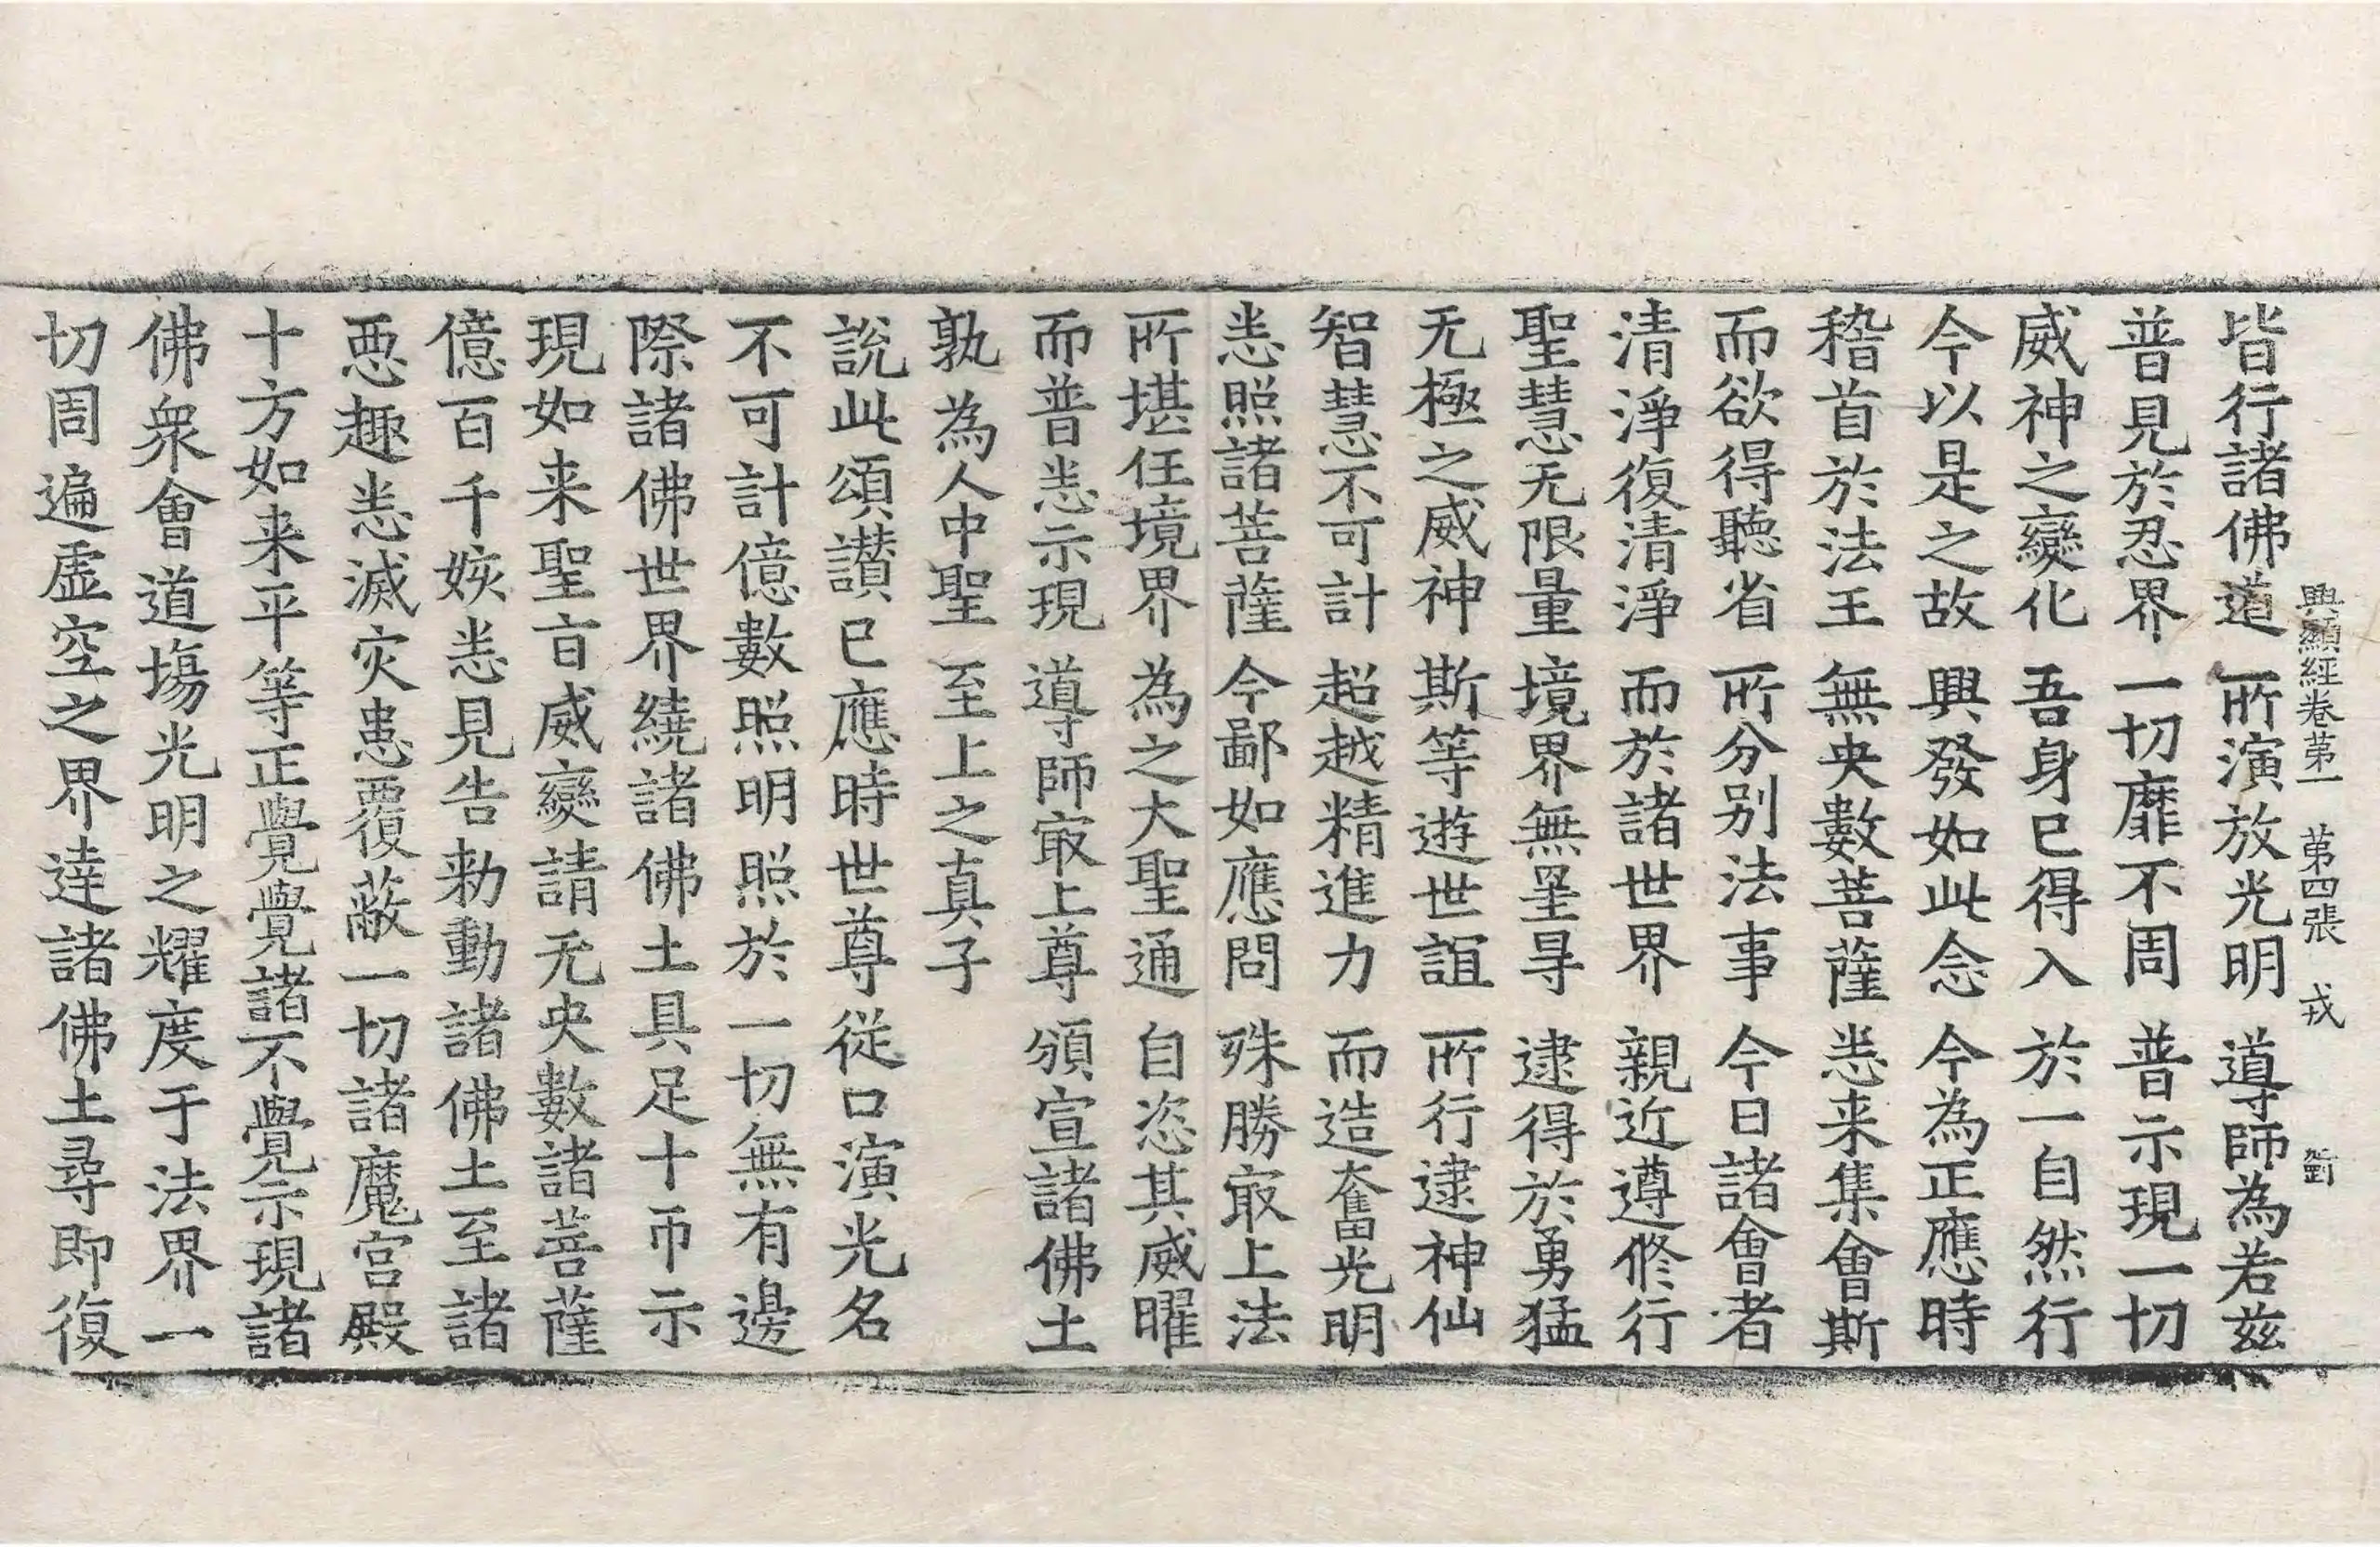 興顯經卷第一 第四張 戎
皆行諸佛道 所演放光明 導師為若茲
普見於忍界 一切靡不周 普示現一切
威神之變化 吾身已得入 於一自然行
今以是之故 興發如此念 今為正應時
稽首於法王 無央數菩薩 悉来集會斯
而欲得聽省 所分別法事 今日諸會者
清淨復清淨 而於諸世界 親近遵修行
聖慧无限量 境界無罣㝵 逮得於勇猛
无極之威神 斯等遊世誼 所行逮神仙
智慧不可計 超越精進力 而造奮光明
悉照諸菩薩 今鄙如應問 殊勝㝡上法
所堪任境界 為之大聖通 自恣其威曜
而普悉示現 導師㝡上尊 頒宣諸佛土
孰為人中聖 至上之真子
說此頌讃已應時世尊從口演光名
不可計億數照明照於一切無有邊
際諸佛世界繞諸佛土具足十帀示
現如来聖旨威變請无央數諸菩薩
億百千姟悉見告勑動諸佛土至諸
惡趣悉滅灾患覆蔽一切諸魔宮殿
十方如来平等正覺覺諸不覺示現諸
佛衆會道場光明之耀度于法界一
切周遍虛空之界達諸佛土尋即復